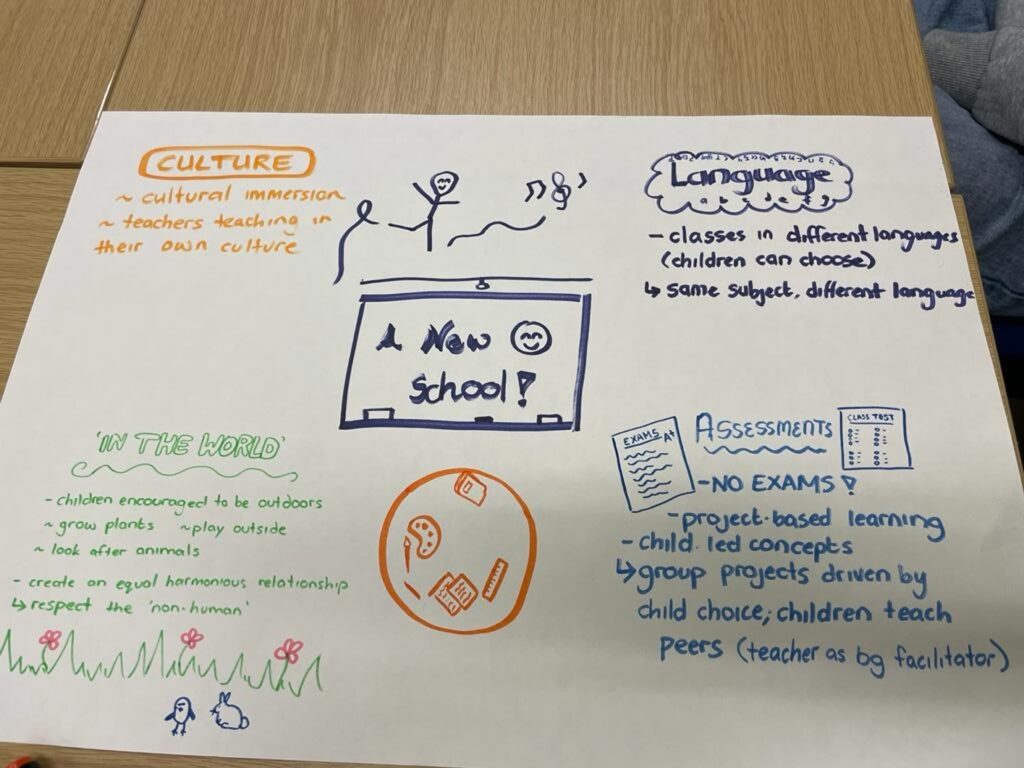 CULTURE
~ cultural immersion
~ teachers teaching in
their own culture
Language
- classes in different languages
(children can choose)
↳ same subject, different language
A New
School!
'IN THE WORLD'
- children encouraged to be outdoors
~ grow plants ~ play outside
~ look after animals
- create an equal harmonious relationship
↳ respect the 'non-human'
EXAMS A+
ASSESSMENTS
CLASS TEST
- NO EXAMS!
- project-based learning
- child-led concepts
↳ group projects driven by
child choice; children teach
peers (teacher as bg facilitator)